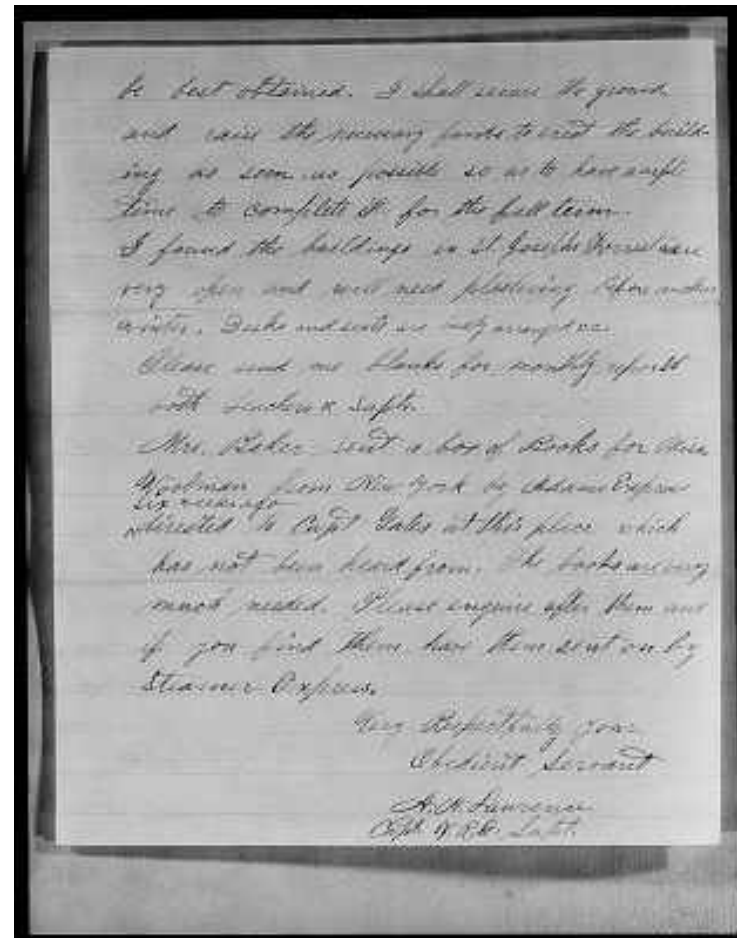 be best obtained. I shall secure the ground
and raise the necessary funds to erect the build-
ing as soon as possible so as to have ample
time to complete it for the fall term.
I found the buildings in St. Joseph
very open and will need plastering before
winter. Desks and seats are
Please send me blanks for monthly reports
both teachers & Supts.
Mrs. Baker sent a box of Books for Miss
from New York by Adams Express
six weeks ago
directed to Capt Gates at this place which
has not been heard from. The books are very
much needed. Please enquire after them and
if you find them have them sent on by
Steamer Express.
Very Respectfully your
Obedient Servant
Lawrence
Capt